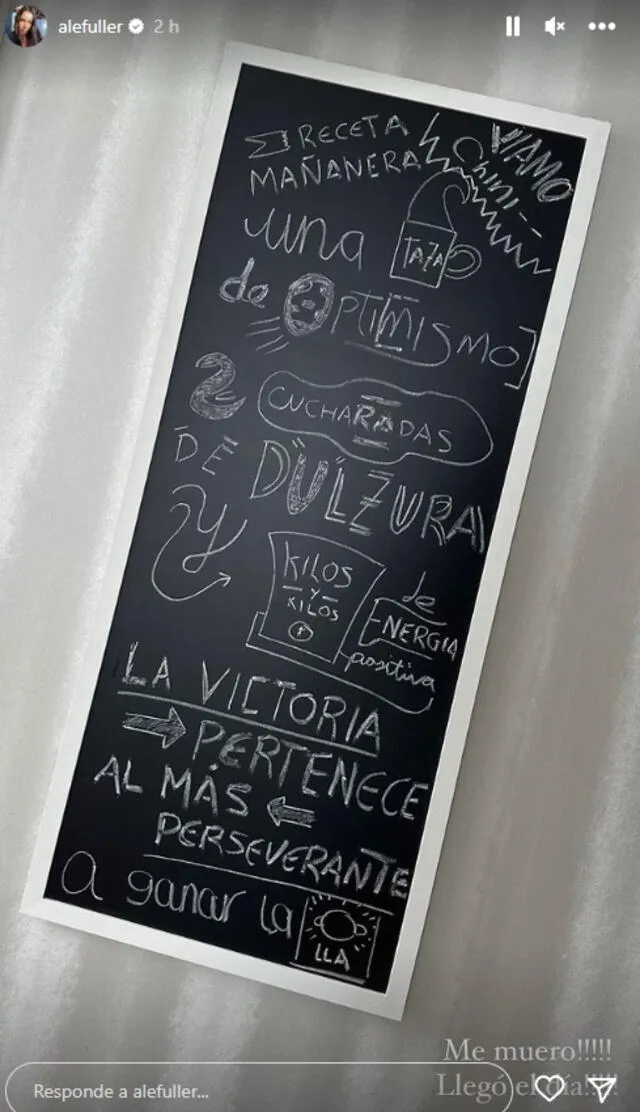 alefuller 2 h
RECETA
MAÑANERA
VAMO
Chini--
una TAZA
de OPTIMISMO
2 CUCHARADAS
DE DULZURA
Y KILOS
Y
KILOS
de
ENERGIA
positiva
LA VICTORIA
PERTENECE
AL MÁS
PERSEVERANTE
A ganar la
LLA
Me muero!!!!!
Llegó el día!!!!
Responde a alefuller...